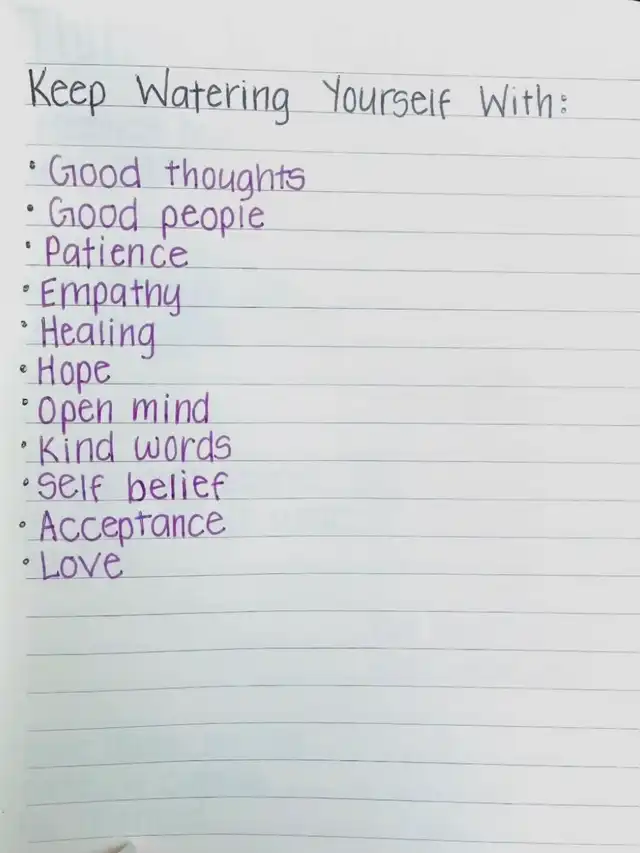 Keep Watering Yourself With:
• Good thoughts
• Good people
• Patience
• Empathy
• Healing
• Hope
• Open mind
• Kind words
• Self belief
• Acceptance
• Love